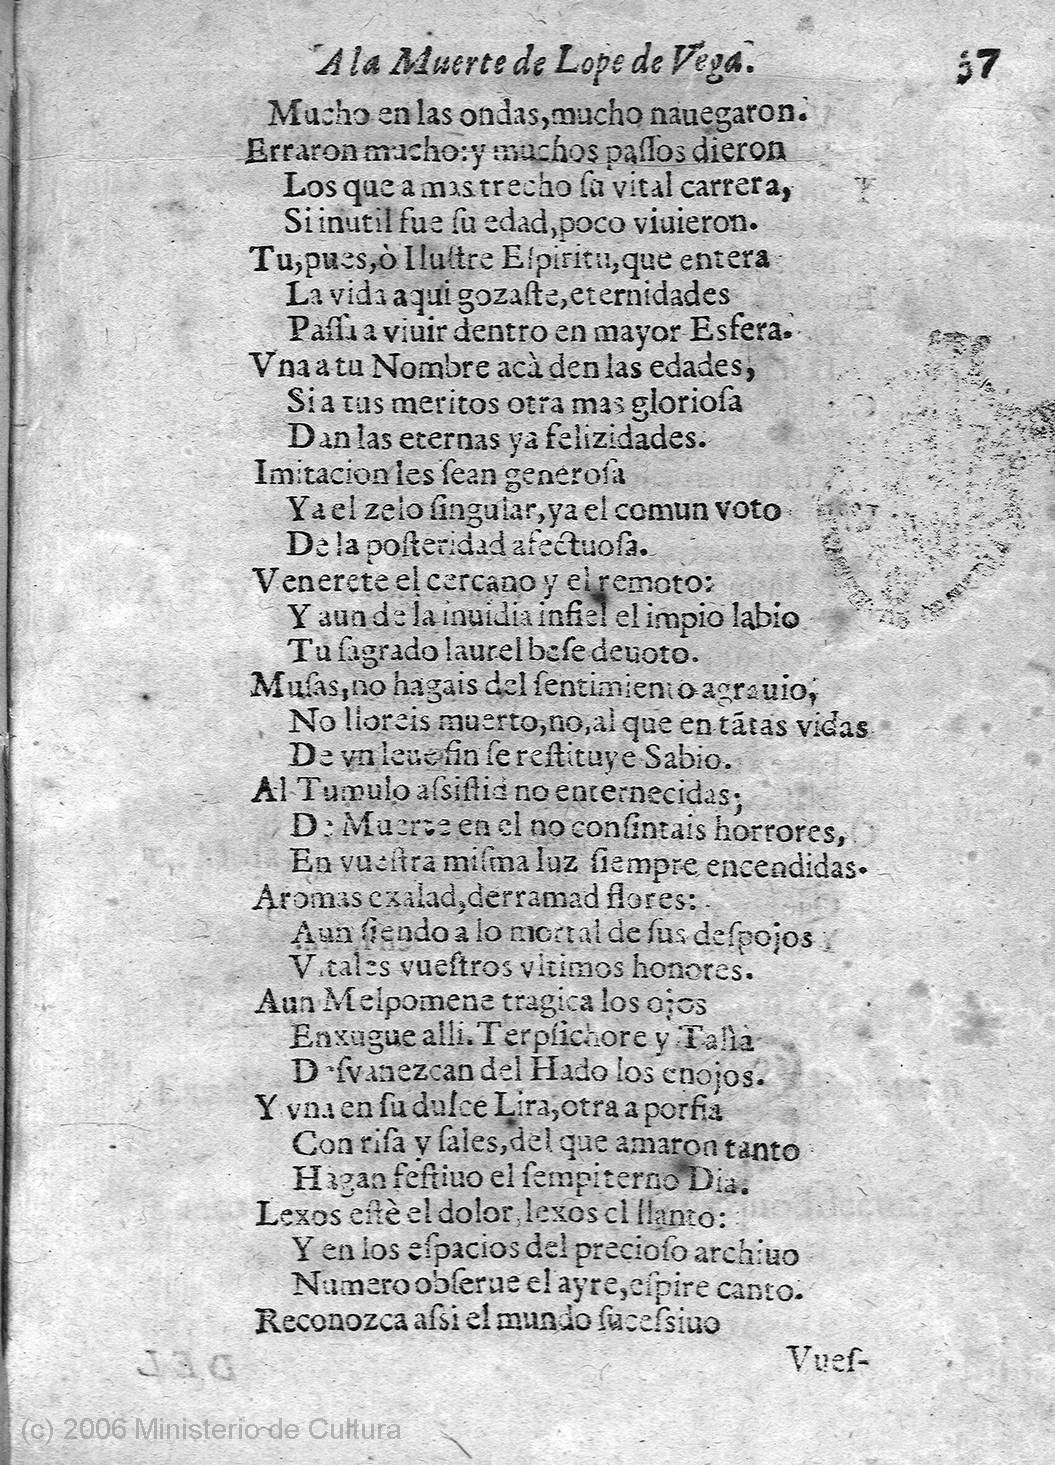 A la Muerte de Lope de Vega. 57
Mucho en las ondas, mucho nauegaron.
Erraron mucho: y muchos paſſos dieron
Los que a mas trecho ſu vital carrera,
Si inutil fue ſu edad, poco viuieron.
Tu, pues, ò Iluſtre Eſpiritu, que entera
La vida aqui gozaſte, eternidades
Paſſa a viuir dentro en mayor Esfera.
Vna a tu Nombre acà den las edades,
Si a tus meritos otra mas glorioſa
Dan las eternas ya felizidades.
Imitacion les ſean generoſa
Ya el zelo ſingular, ya el comun voto
De la poſteridad afectuoſa.
Venerete el cercano y el remoto:
Y aun de la inuidia infiel el impio labio
Tu ſagrado laurel beſe deuoto.
Muſas, no hagais del ſentimiento agrauio,
No lloreis muerto, no, al que en tãtas vidas
De vn leue fin ſe reſtituye Sabio.
Al Tumulo aſsiſtid no enternecidas;
De Muerte en el no conſintais horrores,
En vueſtra miſma luz ſiempre encendidas.
Aromas exalad, derramad flores:
Aun ſiendo a lo mortal de ſus deſpojos
Vitales vueſtros vltimos honores.
Aun Melpomene tragica los ojos
Enxugue alli. Terpſichore y Talìa
Deſvanezcan del Hado los enojos.
Y vna en ſu dulce Lira, otra a porfia
Con riſa y ſales, del que amaron tanto
Hagan feſtiuo el ſempiterno Dia.
Lexos eſtè el dolor, lexos el llanto:
Y en los eſpacios del precioſo archiuo
Numero obſerue el ayre, eſpire canto.
Reconozca aſsi el mundo ſuceſsiuo
Vueſ-
(c) 2006 Ministerio de Cultura